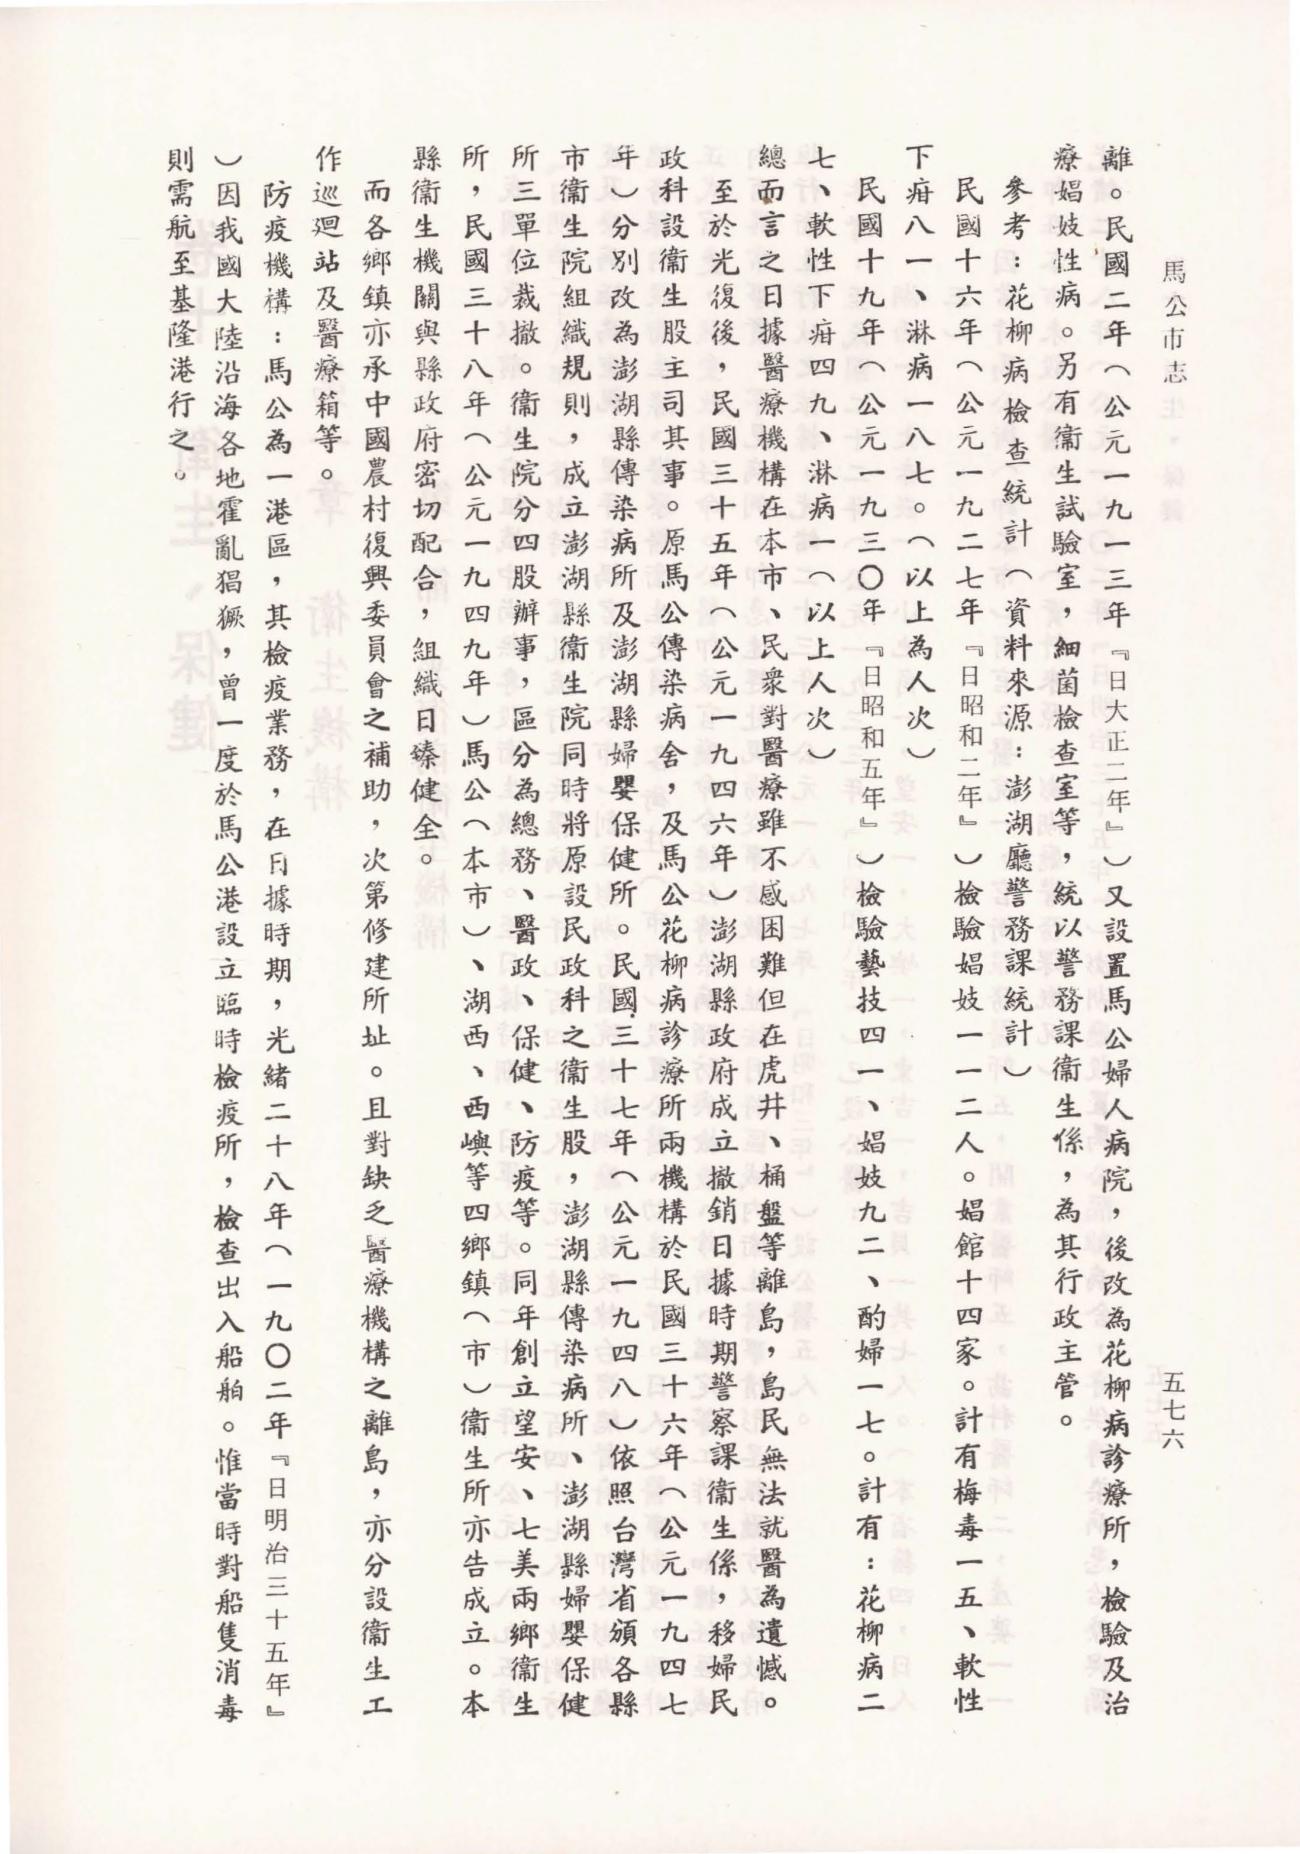 馬公市志
五七六
離。民國二年（公元一九一三年『日大正二年』）又設置馬公婦人病院，後改為花柳病診療所，檢驗及治
療娼妓性病。另有衞生試驗室，細菌檢查室等，統以警務課衞生係，為其行政主管。
參考：花柳病檢查統計（資料來源：澎湖廳警務課統計）
民國十六年（公元一九二七年『日昭和二年』）檢驗娼妓一一二人。娼館十四家。計有梅毒一五、軟性
下疳八一、淋病一八七。（以上為人次）
民國十九年（公元一九三〇年『日昭和五年』）檢驗藝技四一、娼妓九二、酌婦一七。計有：花柳病二
七、軟性下疳四九、淋病一（以上人次）
總而言之日據醫療機構在本市、民衆對醫療雖不感困難但在虎井、桶盤等離島，島民無法就醫為遺憾。
至於光復後，民國三十五年（公元一九四六年）澎湖縣政府成立撤銷日據時期警察課衞生係，移婦民
政科設衞生股主司其事。原馬公傳染病舍，及馬公花柳病診療所兩機構於民國三十六年（公元一九四七
年）分別改為澎湖縣傳染病所及澎湖縣婦嬰保健所。民國三十七年（公元一九四八）依照台灣省頒各縣
市衞生院組織規則，成立澎湖縣衞生院同時將原設民政科之衞生股，澎湖縣傳染病所、澎湖縣婦嬰保健
所三單位裁撤。衞生院分四股辦事，區分為總務、醫政、保健、防疫等。同年創立望安、七美兩鄉衞生
所，民國三十八年（公元一九四九年）馬公（本市）、湖西、西嶼等四鄉鎮（市）衞生所亦告成立。本
縣衞生機關與縣政府密切配合，組織日臻健全。
而各鄉鎮亦承中國農村復興委員會之補助，次第修建所址。且對缺乏醫療機構之離島，亦分設衞生工
作巡迴站及醫療箱等。
防疫機構：馬公為一港區，其檢疫業務，在日據時期，光緒二十八年（一九〇二年『日明治三十五年』
）因我國大陸沿海各地霍亂猖獗，曾一度於馬公港設立臨時檢疫所，檢查出入船舶。惟當時對船隻消毒
則需航至基隆港行之。